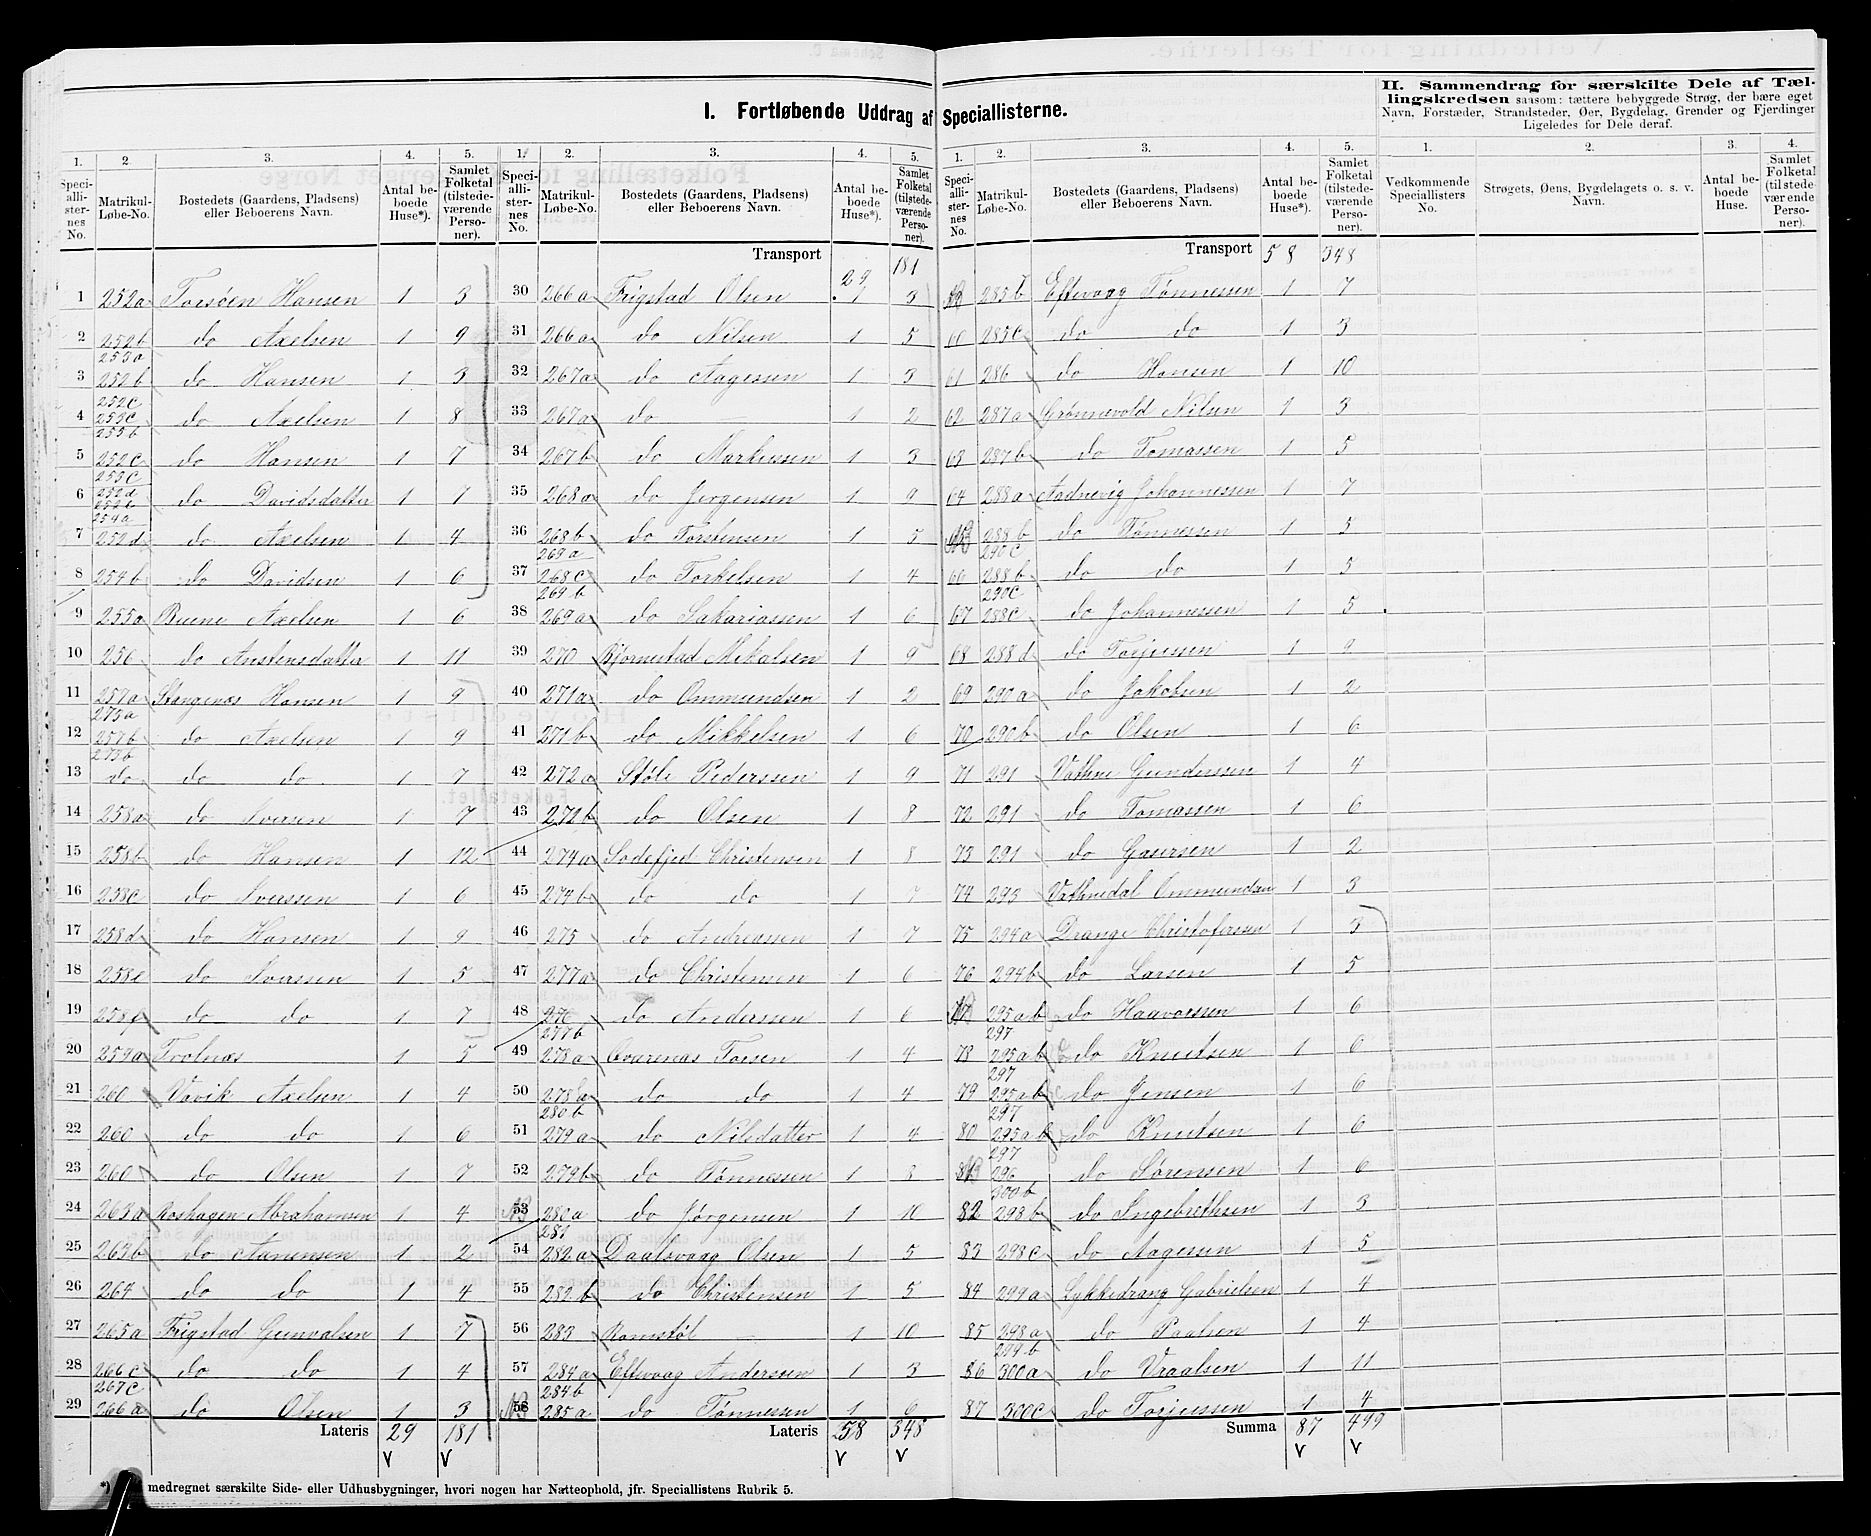 I. Fortløbende Uddrag af Speciallisterne.
II. Sammendrag for særskilte Dele af Tællingskredsen saasom: tættere bebyggede Strøg, der bære eget Navn, Forstæder, Strandsteder, Øer, Bygdelag, Grender og Fjerdinger Ligeledes for Dele deraf.
1. 2. 3. 4. 5.
Speciallisternes No. Matrikul-Løbe-No. Bostedets (Gaardens, Pladsens) eller Beboerens Navn. Antal beboede Huse*). Samlet Folketal (tilstedeværende Personer).
1 252a Torsöen Hansen 1 3
2 252b 253a do Axelsen 1 9
3 252b do Hansen 1 3
4 252c 253c 255b do Axelsen 1 8
5 252c 255c do Hansen 1 7
6 252d do Davidsdatter 1 7
7 252d do Axelsen 1 4
8 254b do Davidsen 1 6
9 255a Buene Axelsen 1 6
10 256 do Anstensdatter 1 11
11 257a 273a Stangenæs Hansen 1 9
12 257b 273b do Axelsen 1 9
13 do do do 1 7
14 258a do Iversen 1 7
15 258b do Hansen 1 12
16 258c do Iverssen 1 6
17 258d do Hansen 1 9
18 258e do Iverssen 1 5
19 258f do do 1 7
20 259a Tvolnæs 1 5
21 260 Vavik Axelsen 1 4
22 260 do do 1 6
23 260 do Olsen 1 7
24 263a Roshagen Abrahamsen 1 4
25 263b do Aanensen 1 2
26 264 do do 1 4
27 265a Frigstad Gunvalsen 1 7
28 266c 267c do do 1 4
29 266a do Olsen 1 3
Lateris 29 181
Transport 29 181
30 266a Frigstad Olsen 1 3
31 266a do Nilsen 1 5
32 267a do Aagessen 1 3
33 267a do 1 2
34 267b do Markussen 1 3
35 268a do Jørgensen 1 9
36 268b 269a do Torstensen 1 5
37 268c 269b do Torkelsen 1 4
38 269a do Sakariassen 1 6
39 270 Bjørnestad Mikalsen 1 9
40 271a do Ommundsen 1 2
41 271b do Mikkelsen 1 6
42 272a Støle Pederssen 1 9
43 272b do Olsen 1 8
44 274a Sodefjed Christensen 1 8
45 274b do do 1 7
46 275 do Andreassen 1 7
47 277a do Christensen 1 6
48 276 277b do Anderssen 1 6
49 278a Qvarenæs Torsen 1 4
50 278a 280b do do 1 4
51 279a do Nilsdatter 1 4
52 279b do Tønnessen 1 3
53 280a 281 do Jørgensen 1 10
54 282a Daatsvaag Olsen 1 5
55 282b do Christensen 1 5
56 283 Ramstøl 1 10
57 284a 284b Eftevaag Anderssen 1 3
58 285a do Tønnessen 1 6
Lateris 58 348
Transport 58 348
285b Eftevaag Tønnessen 1 7
60 285c do do 1 3
61 286 do Hansen 1 10
62 287a Grønnevold Nilsen 1 3
63 287b do Tomassen 1 5
64 288a Aadnevig Johannessen 1 7
65 288b 290c do Tønnessen 1 5
66 288b 290c do do 1 5
67 288c do Johannessen 1 5
68 288d do Torjussen 1 9
69 290a do Jakobsen 1 2
70 290b do Olsen 1 6
71 291 Vathne Gunderssen 1 4
72 291 do Tomassen 1 6
73 291 do Gausen 1 2
74 293 Vathnedal Ommundsen 1 3
75 294a Drange Christoferssen 1 3
76 294b do Larsen 1 5
77 295ab 297 do Haavorssen 1 6
78 295ab 297 do Knutsen 1 6
79 295ab 297 do Jensen 1 6
80 295ab 297 do Knutsen 1 6
81 296 300b do Sørensen 1 6
82 298b do Ingebrethsen 1 3
83 298c do Aagesen 1 5
84 299a Lykkedrang Gabrielsen 1 4
85 298a 299b do Paalsen 1 4
86 300a do Vraalsen 1 11
87 300c do Torjussen 1 4
Summa 87 499
1. 2. 3. 4.
Vedkommende Speciallisters No. Strøgets, Øens, Bygdelagets o. s. v. Navn. Antal beboede Huse. Samlet Folketal (tilstedeværende Personer).
medregnet særskilte Side- eller Udhusbygninger, hvori nogen har Natteophold, jfr. Speciallistens Rubrik 5.